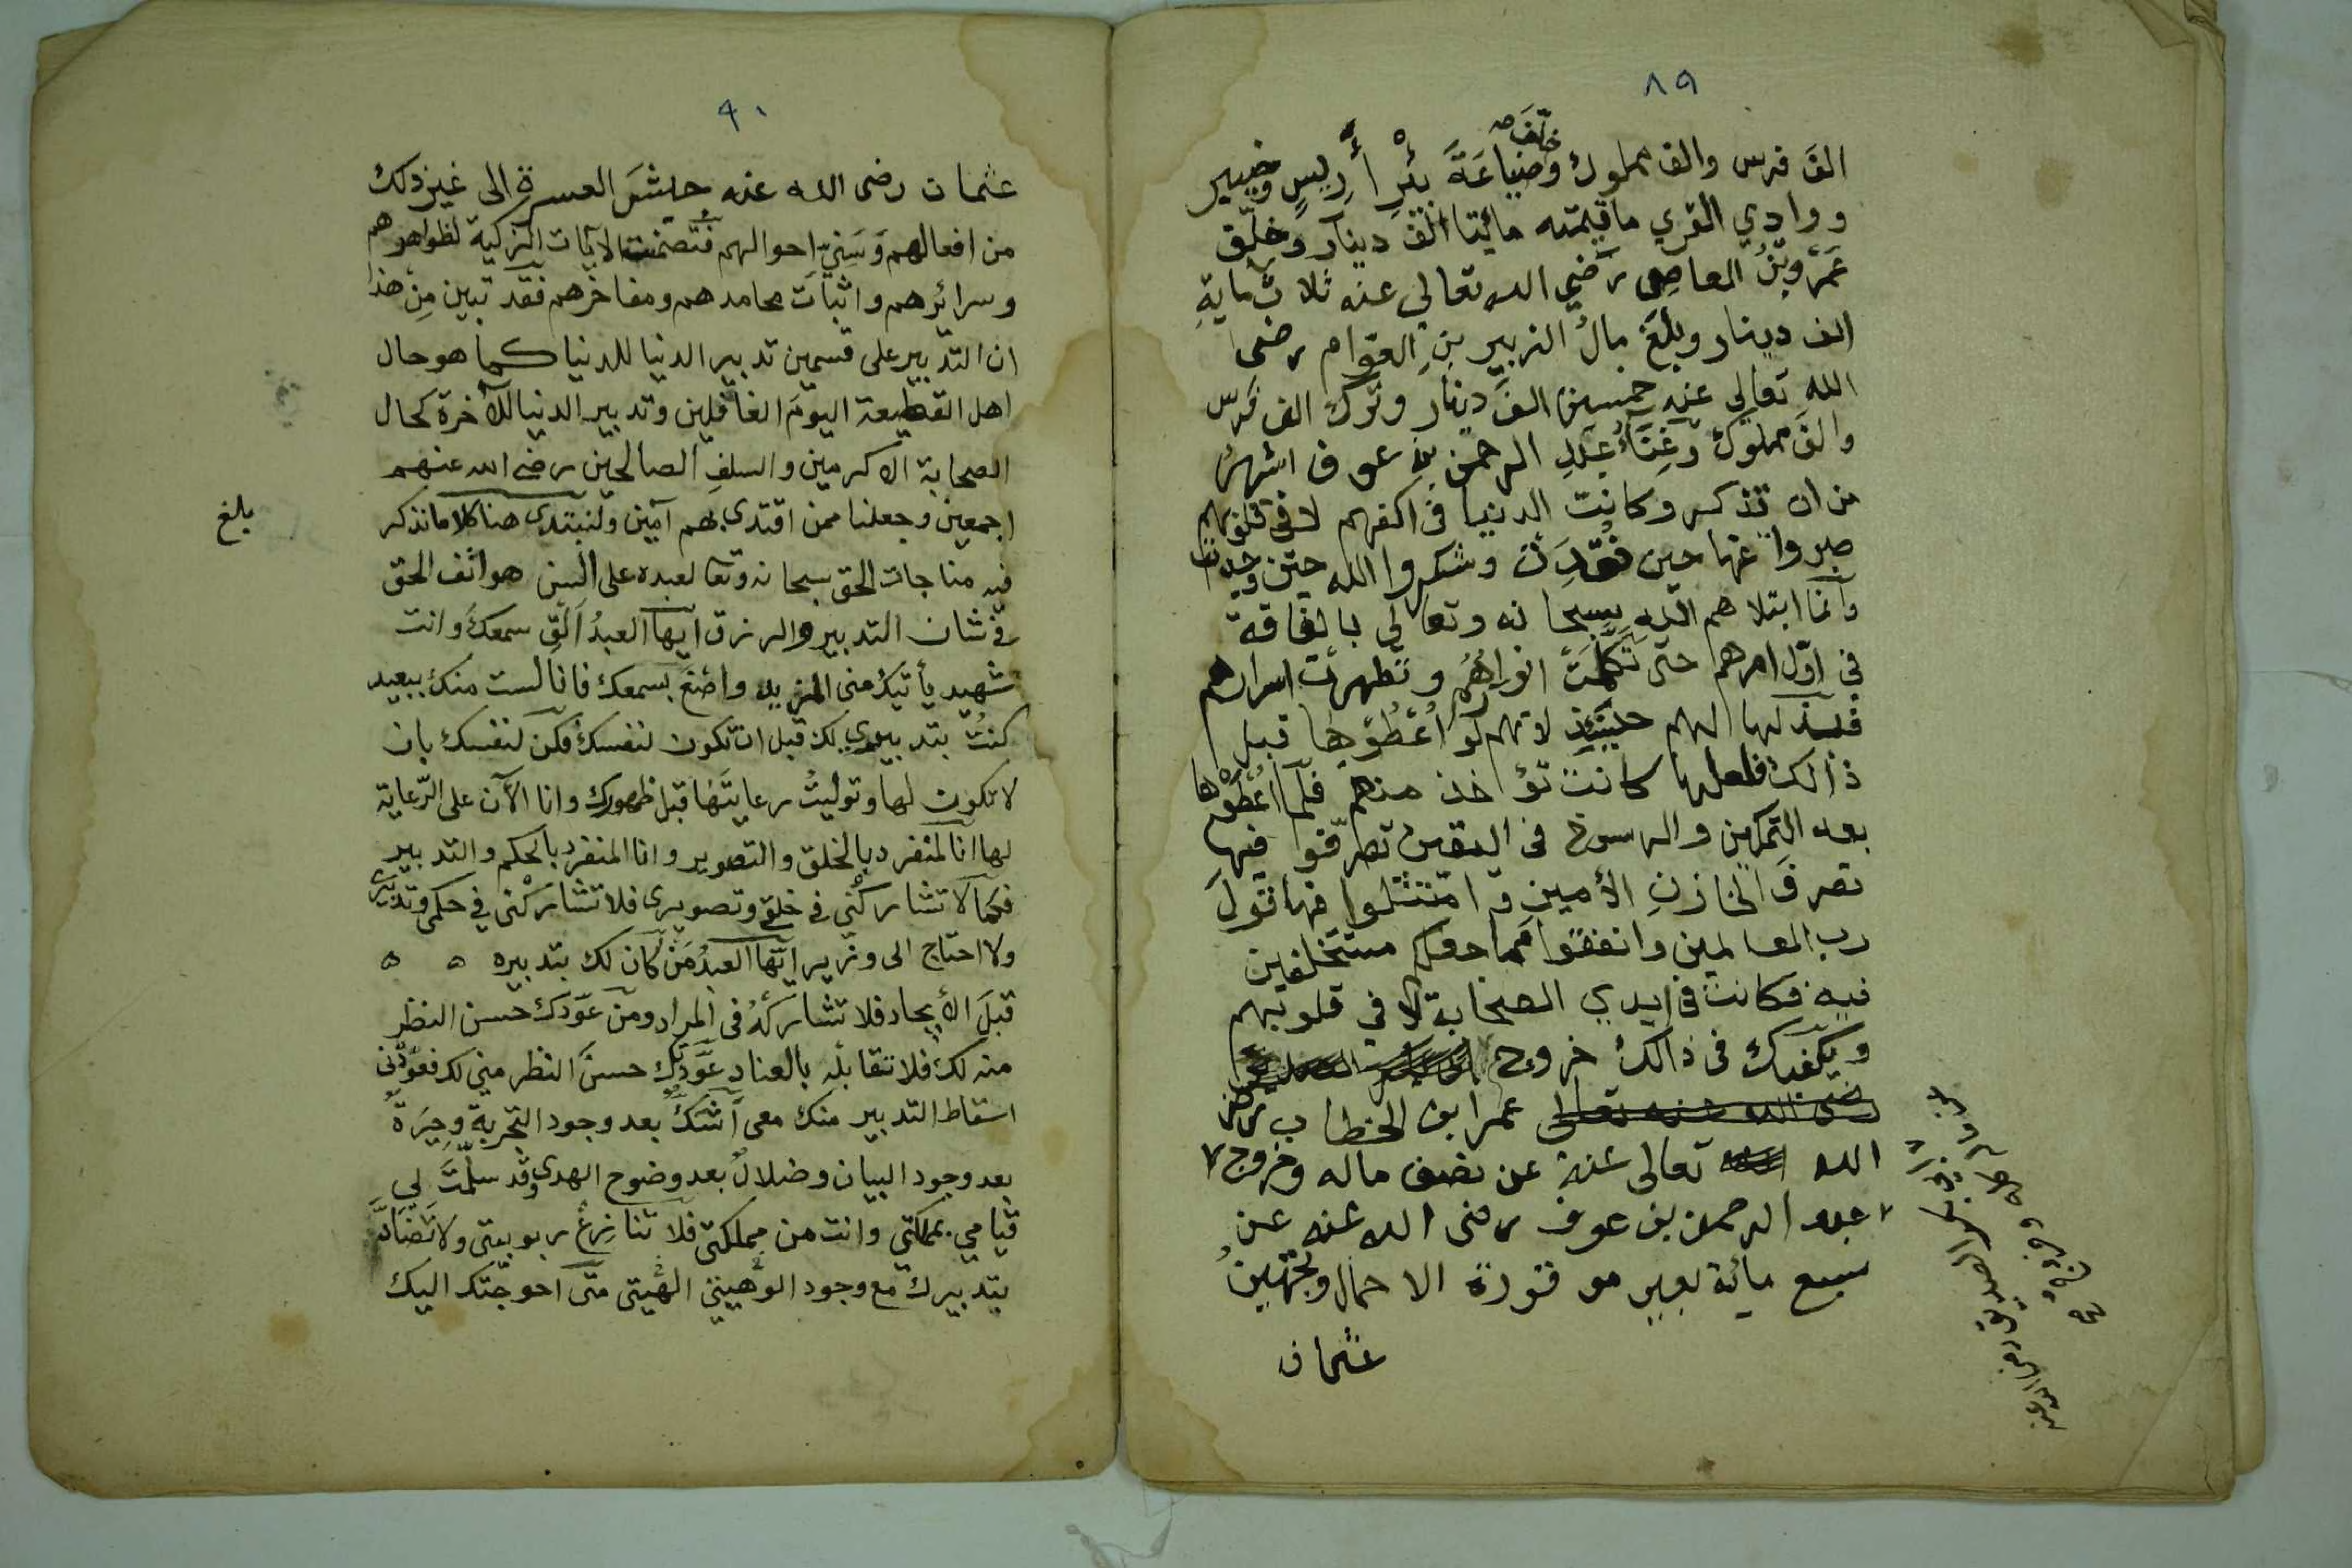 ٨٩
خلّف
الفَ فرس والف مملوك وضياعَةَ بئرِ أَرِيسٍ وخيبر
ووادي القري ما قيمته مائيتا الف دينار وخلّف
عَمْرُو بْنُ العاصِى رضي الله تعالي عنه ثلاثُمايةِ
الف دينار وبلغَ مالُ الزبير بنِ العوام رضى
الله تعالى عنه خمسين الفَ دينار وتركَ الف فرس
والفَ مملوك وغِنَاءُ عبدِ الرحمن بنِ عوف اشهرُ
من ان تذكر وكانت الدنيا فى اكفهم لا فى قلوبهم
صبروا عنها حين فُقِدَتْ وشكروا الله حين وجدت
وانما ابتلاهم الله سبحانه وتعالى بالفاقة
في اوّل امرهم حتى تَكَمَّلَتْ انوارُهُمْ وتطهرت اسرارهم
فبذلها لهم حينئذٍ لانهم لَوْ أُعْطُوها قبل
ذالك فلعلها كانت تؤاخذ منهم فلمّا أُعْطُوْها
بعد التمكين والرسوخ فى اليقين تصرّفوا فيها
تصرفَ الخازنِ الأمينِ وامْتَثَلوا فيها قولَ
رب العالمين وانفقوا مما جعلكم مستخلفين
فيه فكانت فى ايدي الصحابة لا في قلوبهم
ويكفيك فى ذالك خروج
رضى الله عنه تعالى عمر ابن الخطاب رضى
الله تعالى عنه عن نصف ماله وخروج
عبد الرحمن بن عوف رضى الله عنه عن
سبع مائة بعير موقورة الاحمال وتجهيزُ
عثمان
ابى بكر الصديق رضى الله عنه
عن ماله كله وخروج
٩٠
عثمان رضى الله عنه جيشَ العسرةِ الى غير ذلك
من افعالهم وَسَنِيّ احوالهم فتضمنت الايات التزكية لظواهرهم
وسرائرهم واثبات محامدهم ومفاخرهم فقد تبين مِن هذا
ان التدبير على قسمين تدبير الدنيا للدنيا كما هو حال
اهل القطيعة اليومَ الغافلين وتدبير الدنيا للآخرة كحال
الصحابة الاكرمين والسلفِ الصالحين رضى الله عنهم
اجمعين وجعلنا ممن اقتدى بهم آمين ولنبتدى هنا كلاما نذكر
بلغ
فيه مناجات الحق سبحانه وتعا لعبده على السن هواتف الحق
فى شان التدبير والرزق ايها العبدُ اَلْقِ سمعكَ وانت
شهيد يأتيكَ منى المزيد واصْغَ بسمعك فانا لست منك ببعيد
كنتُ بتدبيرى لك قبل ان تكون لنفسك فكن لنفسك بان
لا تكون لها وتوليتُ رعايتَها قبل ظهورك وانا الآن على الرّعاية
لها انا المنفرد بالخلق والتصوير وانا المنفرد بالحكم والتدبير
فكما لا تشاركْنى فى خلقى وتصويرى فلا تشاركْنى في حكمى وتدبيرى
ولا احتاج الى وزير ايها العبدُ مَنْ كان لك بتدبيره ه ه
قبلَ الأيجاد فلا تشاركْهُ فى المراد ومن عوّدك حسن النظر
منه لك فلا تقابلْه بالعناد عَوَّدتُك حسنَ النظر مني لك فعوّدْنى
اسقاط التدبير منك معى أشكٌّ بعد وجود التجربة وحِيَرَةٌ
بعد وجود البيان وضلالٌ بعد وضوح الهدى وقد سلّمتَ لي
قيامي بمملكتي وانت من مملكتى فلا تنازِعْ ربوبيتى ولا تضادَّ
بتدبيرك مع وجود الوهيتى الهيتى متى احوجْتك اليك